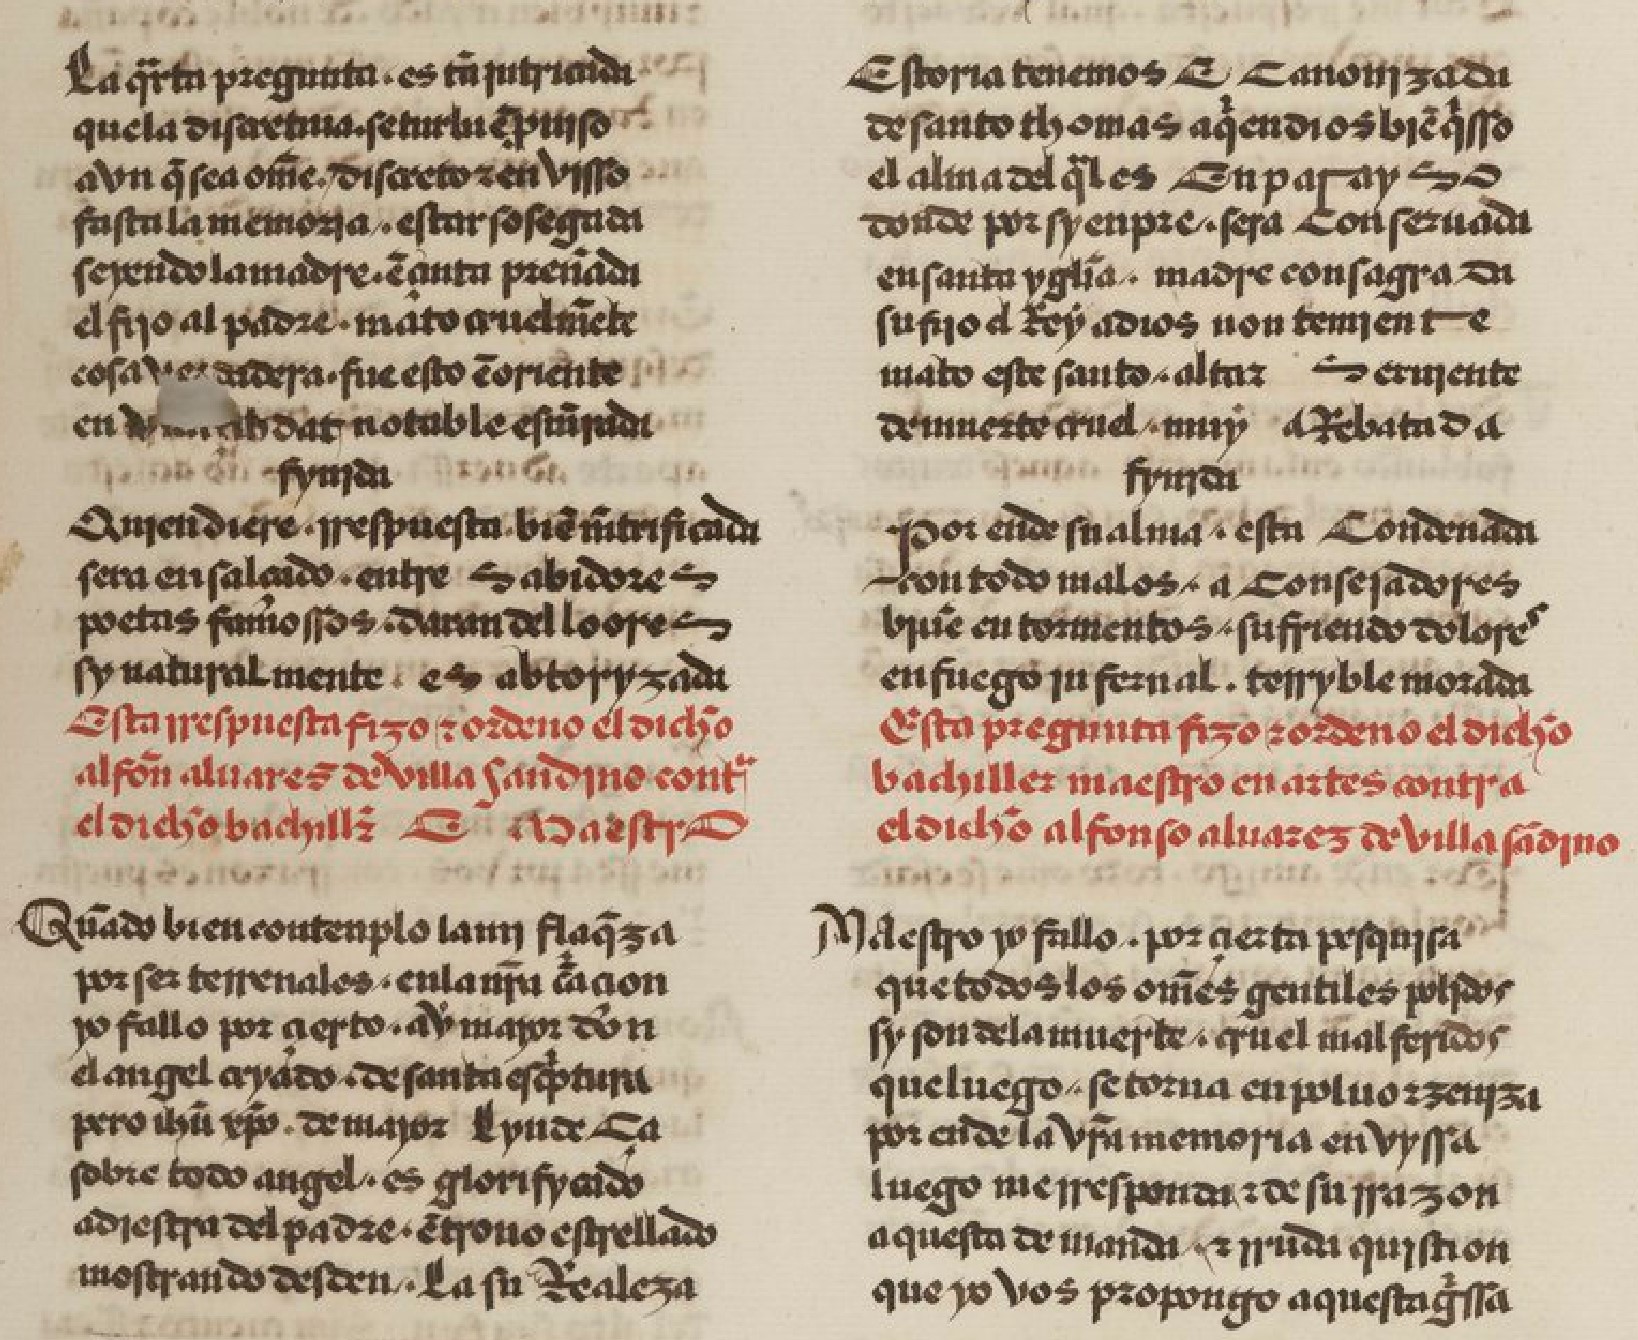 La q̃rta pregunta . es tã jntricada
que la discretiua . se turba ẽ prouiso
avn q̃ sea om̃e . discreto ⁊ en visso
fasta la memoria . estar sosegada
seyendo la madre . ẽ anta preñada
el fijo al padre . mãto cruelmẽte
cosa verdadera . fue esto ẽ oriente
en dat notable
fynida
Quien diere . rrespuesta bien metrificada
sera ensalçado . entre Sabidores
poetas famossos . daran del loores
sy natural mente . es abtoryzada
Esta rrespuesta fizo ⁊ ordeno el dicho
alfõn aluares de villa Sandino contra
el dicho bachiller E Maestro
Quãdo bien contenplo la mj flaq̃za
por ser terrenales . en la nr̃a c̃acion
yo fallo por cierto . av̾ mayor don
el angel cryado . de santa escp̃tura
pero ihũ xp̃o . de mayor Lyndeza
sobre todo angel . es glorifycado
a diestra del padre . ẽ trono estrellado
mostrando desden . La su Realeza
Estoria tenemos E Canonizada
de santo thomas a q̃ en dios biẽ q̃sso
el alma del q̃l es En parayso
donde por syenpre . sera Conseruada
en santa yglia . madre consagrada
su fijo el Rey a dios non temiente
mato este santo . altar Seruiente
de muerte cruel . muy aRebatada
fynida
Por ende su alma . esta Condenada
con todo malos . aConsejadores
byue en tormentos . sufriendo dolores
en fuego jnfernal . terryble morada
Esta pregunta fizo ⁊ ordeno el dicho
bachiller maestro en artes contra
el dicho alfonso aluarez de villa sãdino
Maestro yo fallo . por cierta pesquisa
que todos los om̃es gentiles polidos
sy son de la muerte . cruel mal feridos
que luego . se torna en poluo ⁊ zeniza
por ende la vr̃a memoria en vyssa
luego me rresponda ⁊ de su rrazon
aquesta demanda . ⁊ rruda quistion
que yo vos propongo aquesta g̃ssa